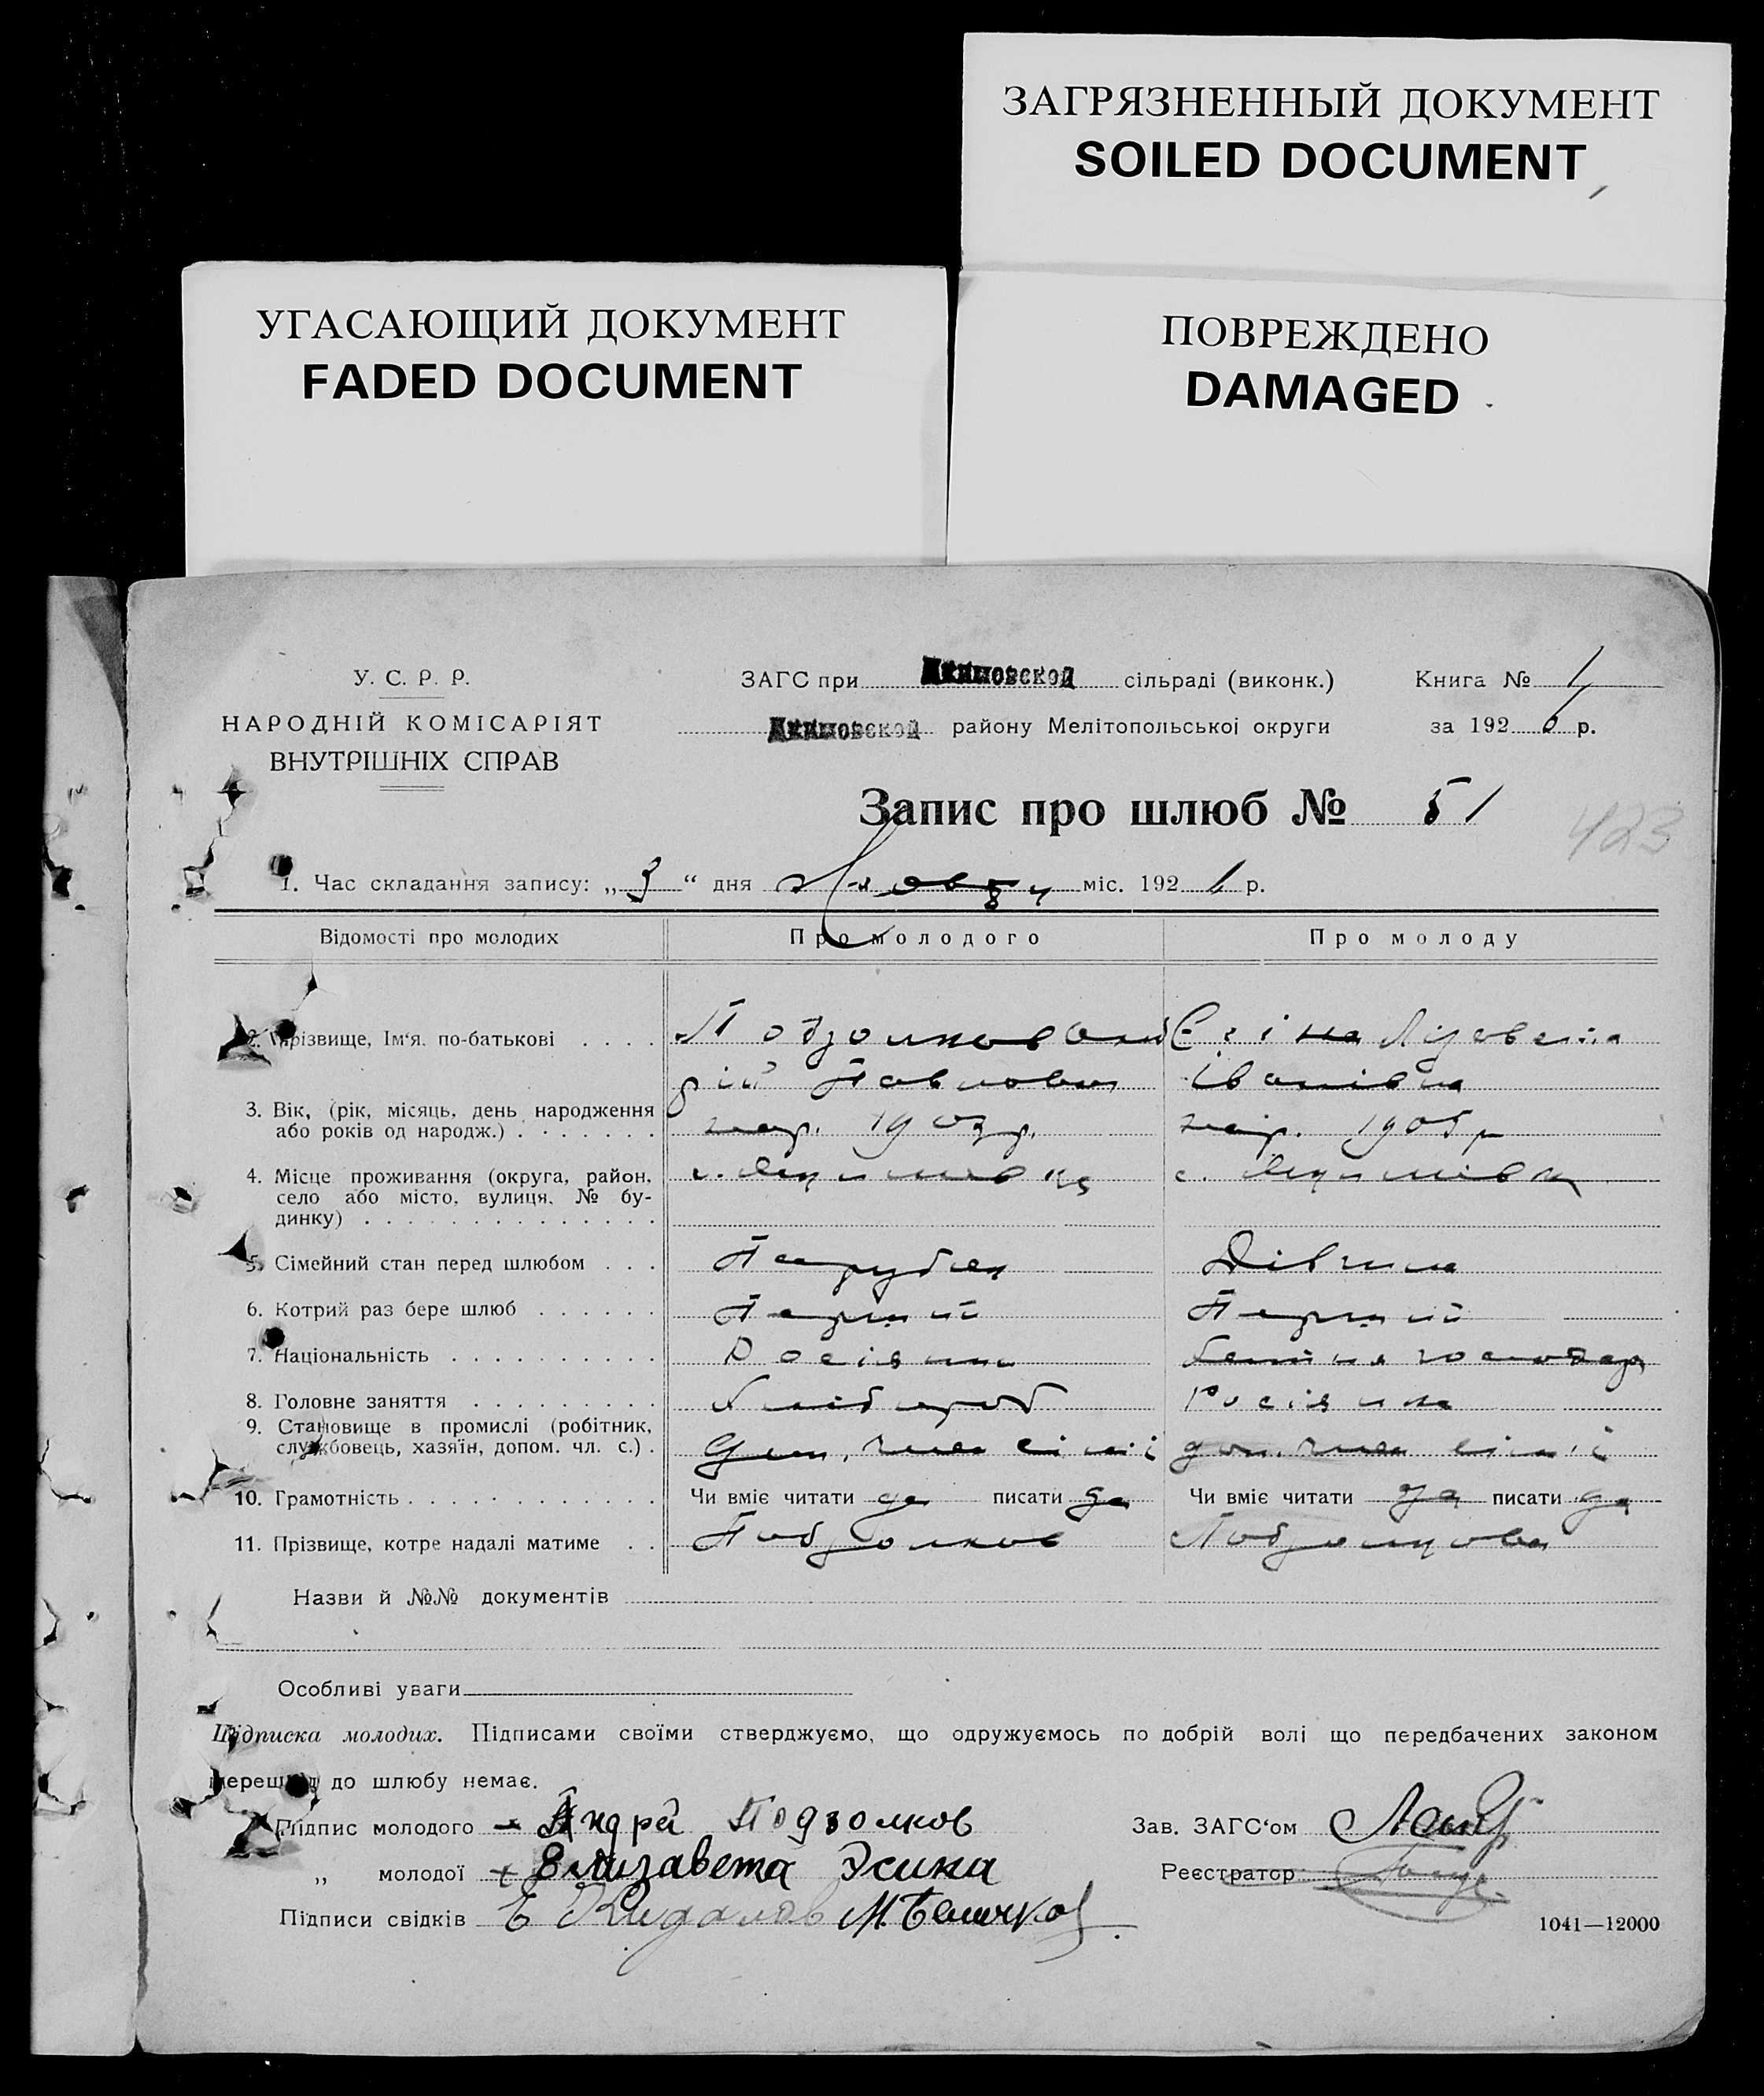 ЗАГРЯЗНЕННЫЙ ДОКУМЕНТ
SOILED DOCUMENT
УГАСАЮЩИЙ ДОКУМЕНТ
FADED DOCUMENT
ПОВРЕЖДЕНО
DAMAGED
У. С. Р. Р.
НАРОДНІЙ КОМІСАРІЯТ
ВНУТРІШНІХ СПРАВ
ЗАГС при Акимовской сільраді (виконк.)
Акимовской району Мелітопольської округи
Книга №
за 192 6 р.
Запис про шлюб № 51
423
1. Час складання запису: „3“ дня Жовтн міс. 192 6 р.
Відомості про молодих
Про молодого
Про молоду
2. Прізвище, Ім'я. по-батькові . . . .
Подзолков Анд
рій Павлович
Єсіна Лізовета
Іванівна
3. Вік, (рік, місяць, день народження або років од народж.) . . . . . . .
нар. 1903р.
нар. 1905 р
4. Місце проживання (округа, район, село або місто, вулиця, № будинку) . . . . . . . . . . . . . .
с. Якимовка
с. Якимівка
5. Сімейний стан перед шлюбом . . .
Парубок
Дівчина
6. Котрий раз бере шлюб . . . . . .
Перший
Перший
7. Національність . . . . . . . . . .
Росіянин
8. Головне заняття . . . . . . . . .
Хлібороб
Росіянка
9. Становище в промислі (робітник, службовець, хазяїн, допом. чл. с.) .
доп. член сімії
доп. член сімії
10. Грамотність . . . . . . . . . . . .
Чи вміє читати да писати да
Чи вміє читати да писати да
11. Прізвище, котре надалі матиме . .
Подзолков
Подзолкова
Назви й №№ документів
Особливі уваги
Підписка молодих. Підписами своїми стверджуємо, що одружуємось по добрій волі що передбачених законом
перешкод до шлюбу немає.
Підпис молодого Андрей Подзолков
„ молодої Елизавета Эсина
Підписи свідків
Зав. ЗАГС'ом
Реєстратор
1041—12000